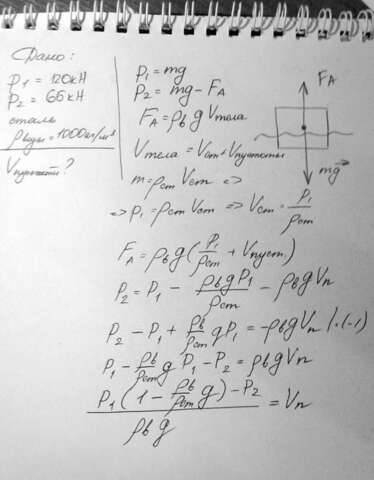 Дано:
P1 = 120кН
P2 = 65кН
сталь
ρводы = 1000кг/м³
Vпустот ?
P1 = mg
P2 = mg - FA
FA = ρв g Vтела
Vтела = Vст + Vпустоты
m = ρст Vст =>
=> P1 = ρст Vст => Vст = P1/ρст
FA = ρв g (P1/ρст + Vпуст.)
P2 = P1 - ρв g P1/ρст - ρв g Vп
P2 - P1 + ρв/ρст g P1 = -ρв g Vп / · (-1)
P1 - ρв/ρст g P1 - P2 = ρв g Vп
P1 (1 - ρв/ρст g) - P2 / ρв g = Vп
FA
mg